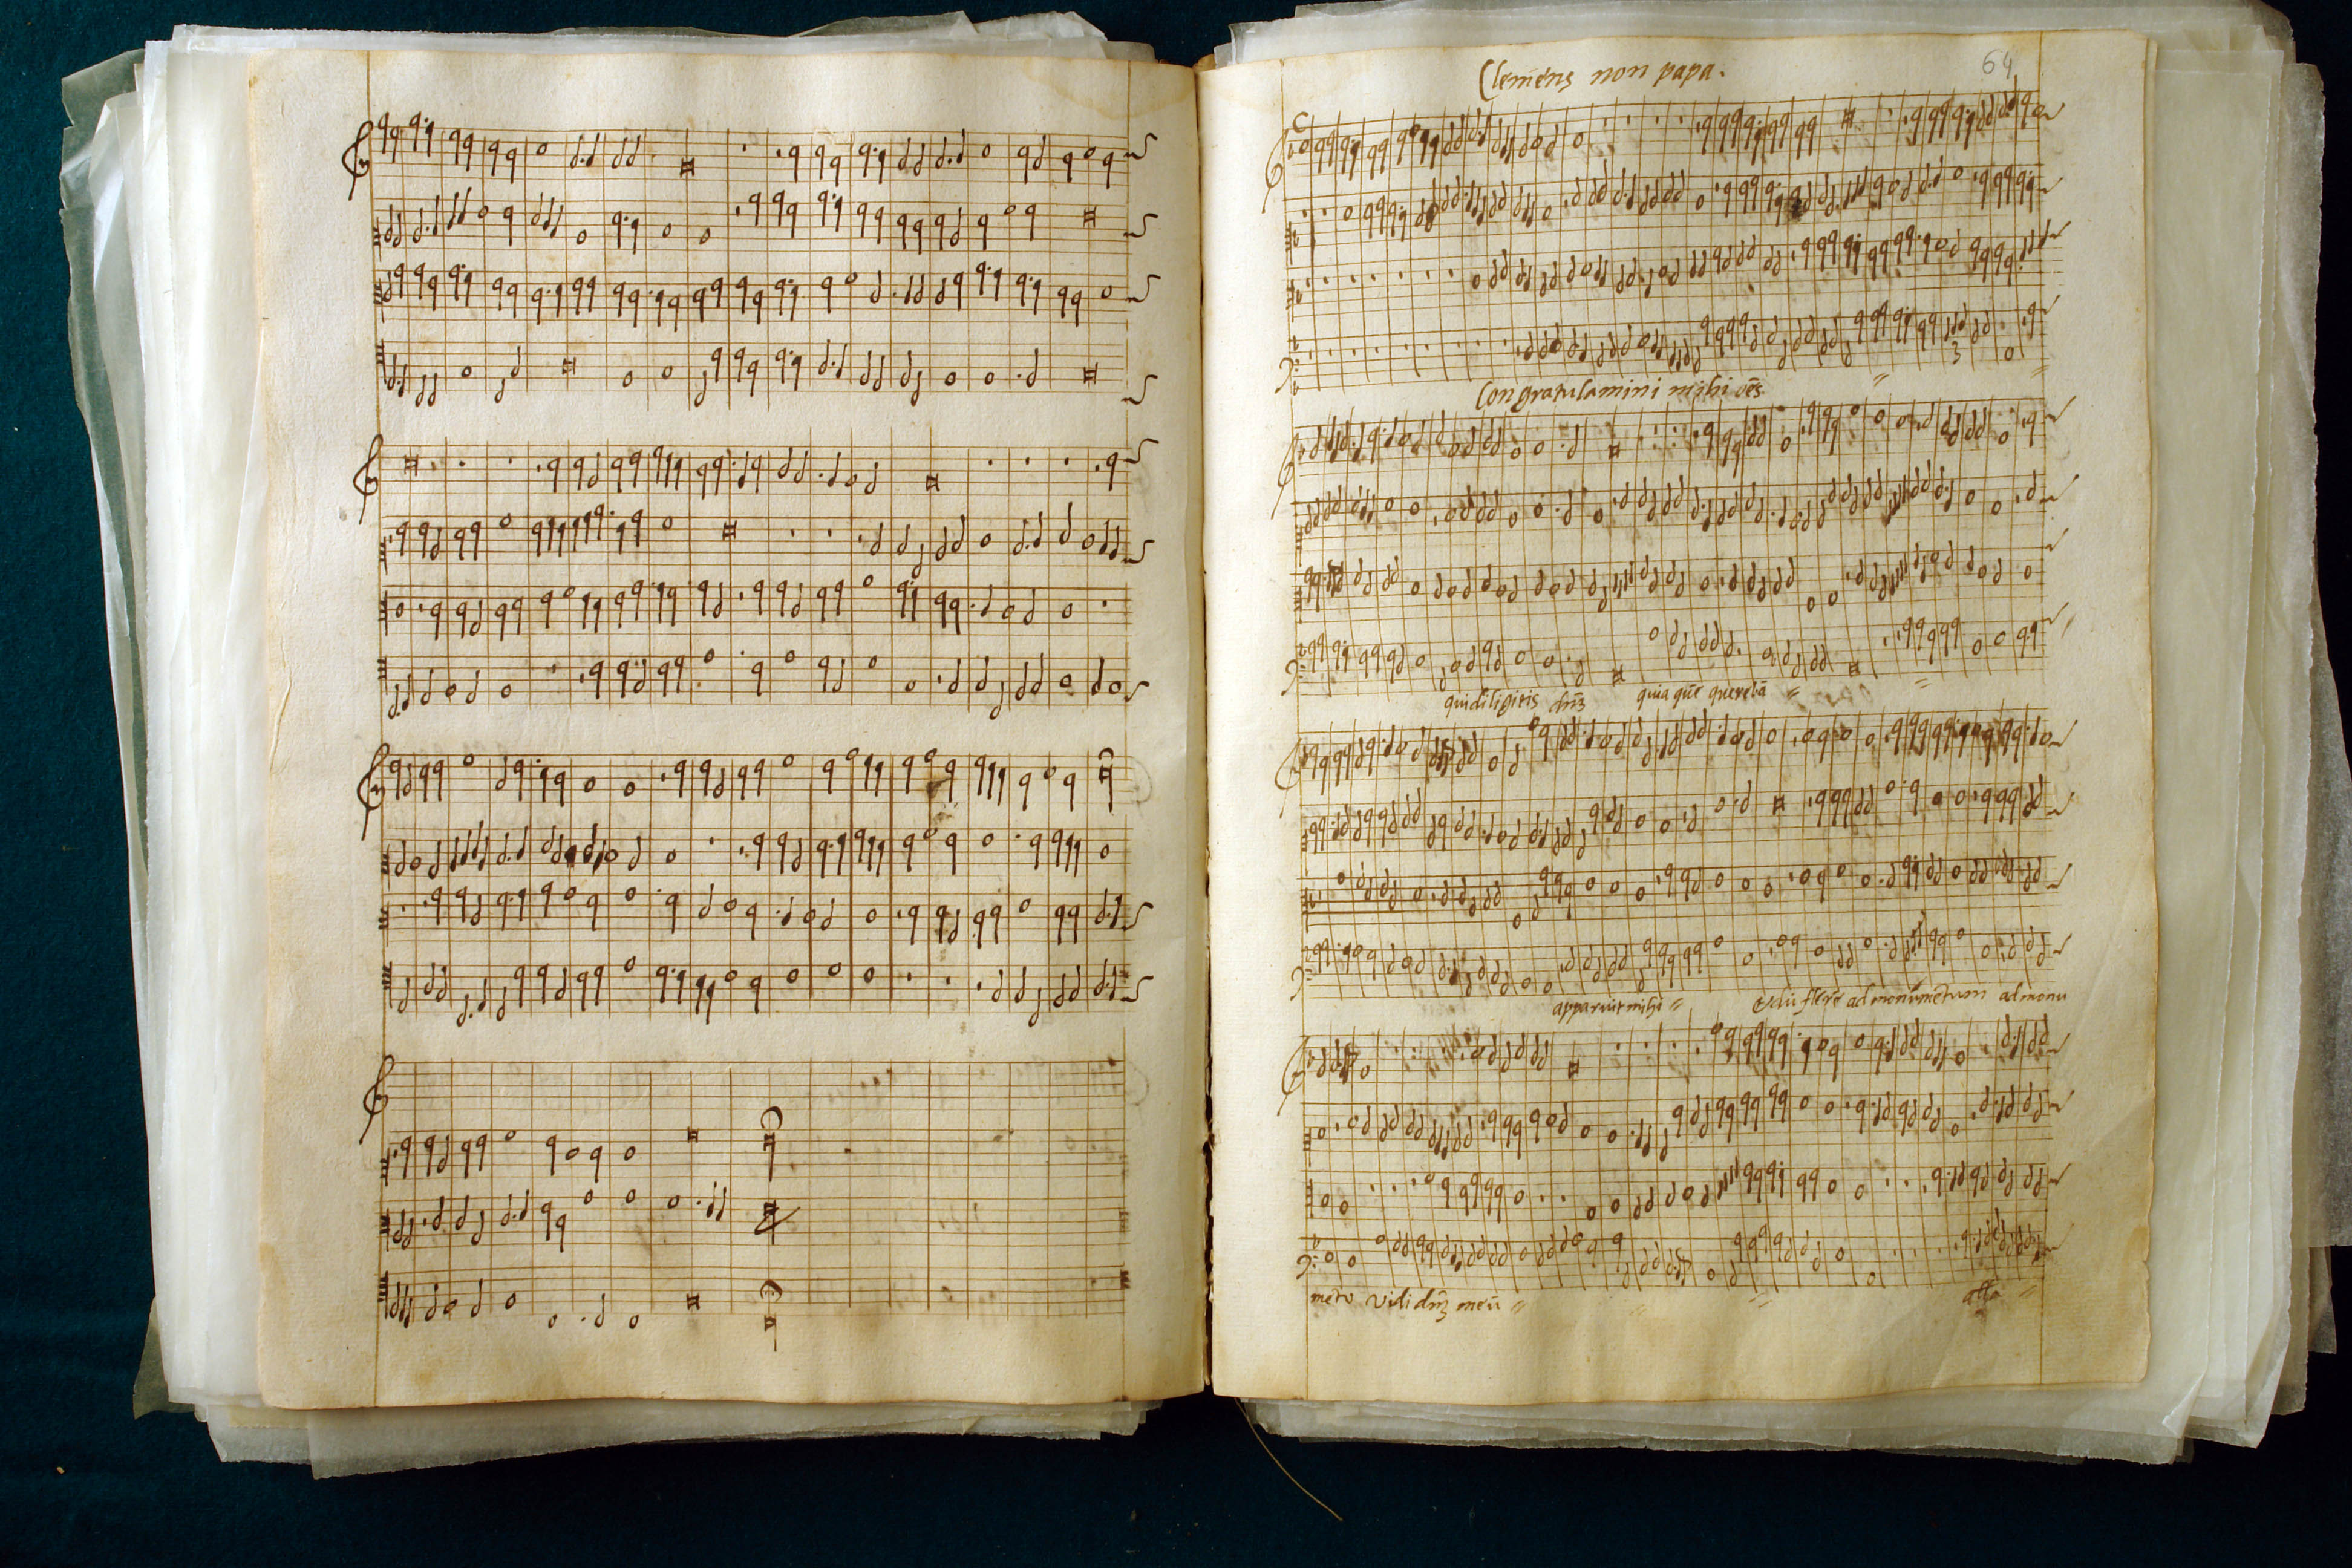 Clemēns non papa.
64
Congratulamini mihi oēs
quidiligitis dn̄ȝ quia quē querebā
apparuit mihi edū flerē ad monumētum ad monu
mēto vidi dn̄ȝ meū alla